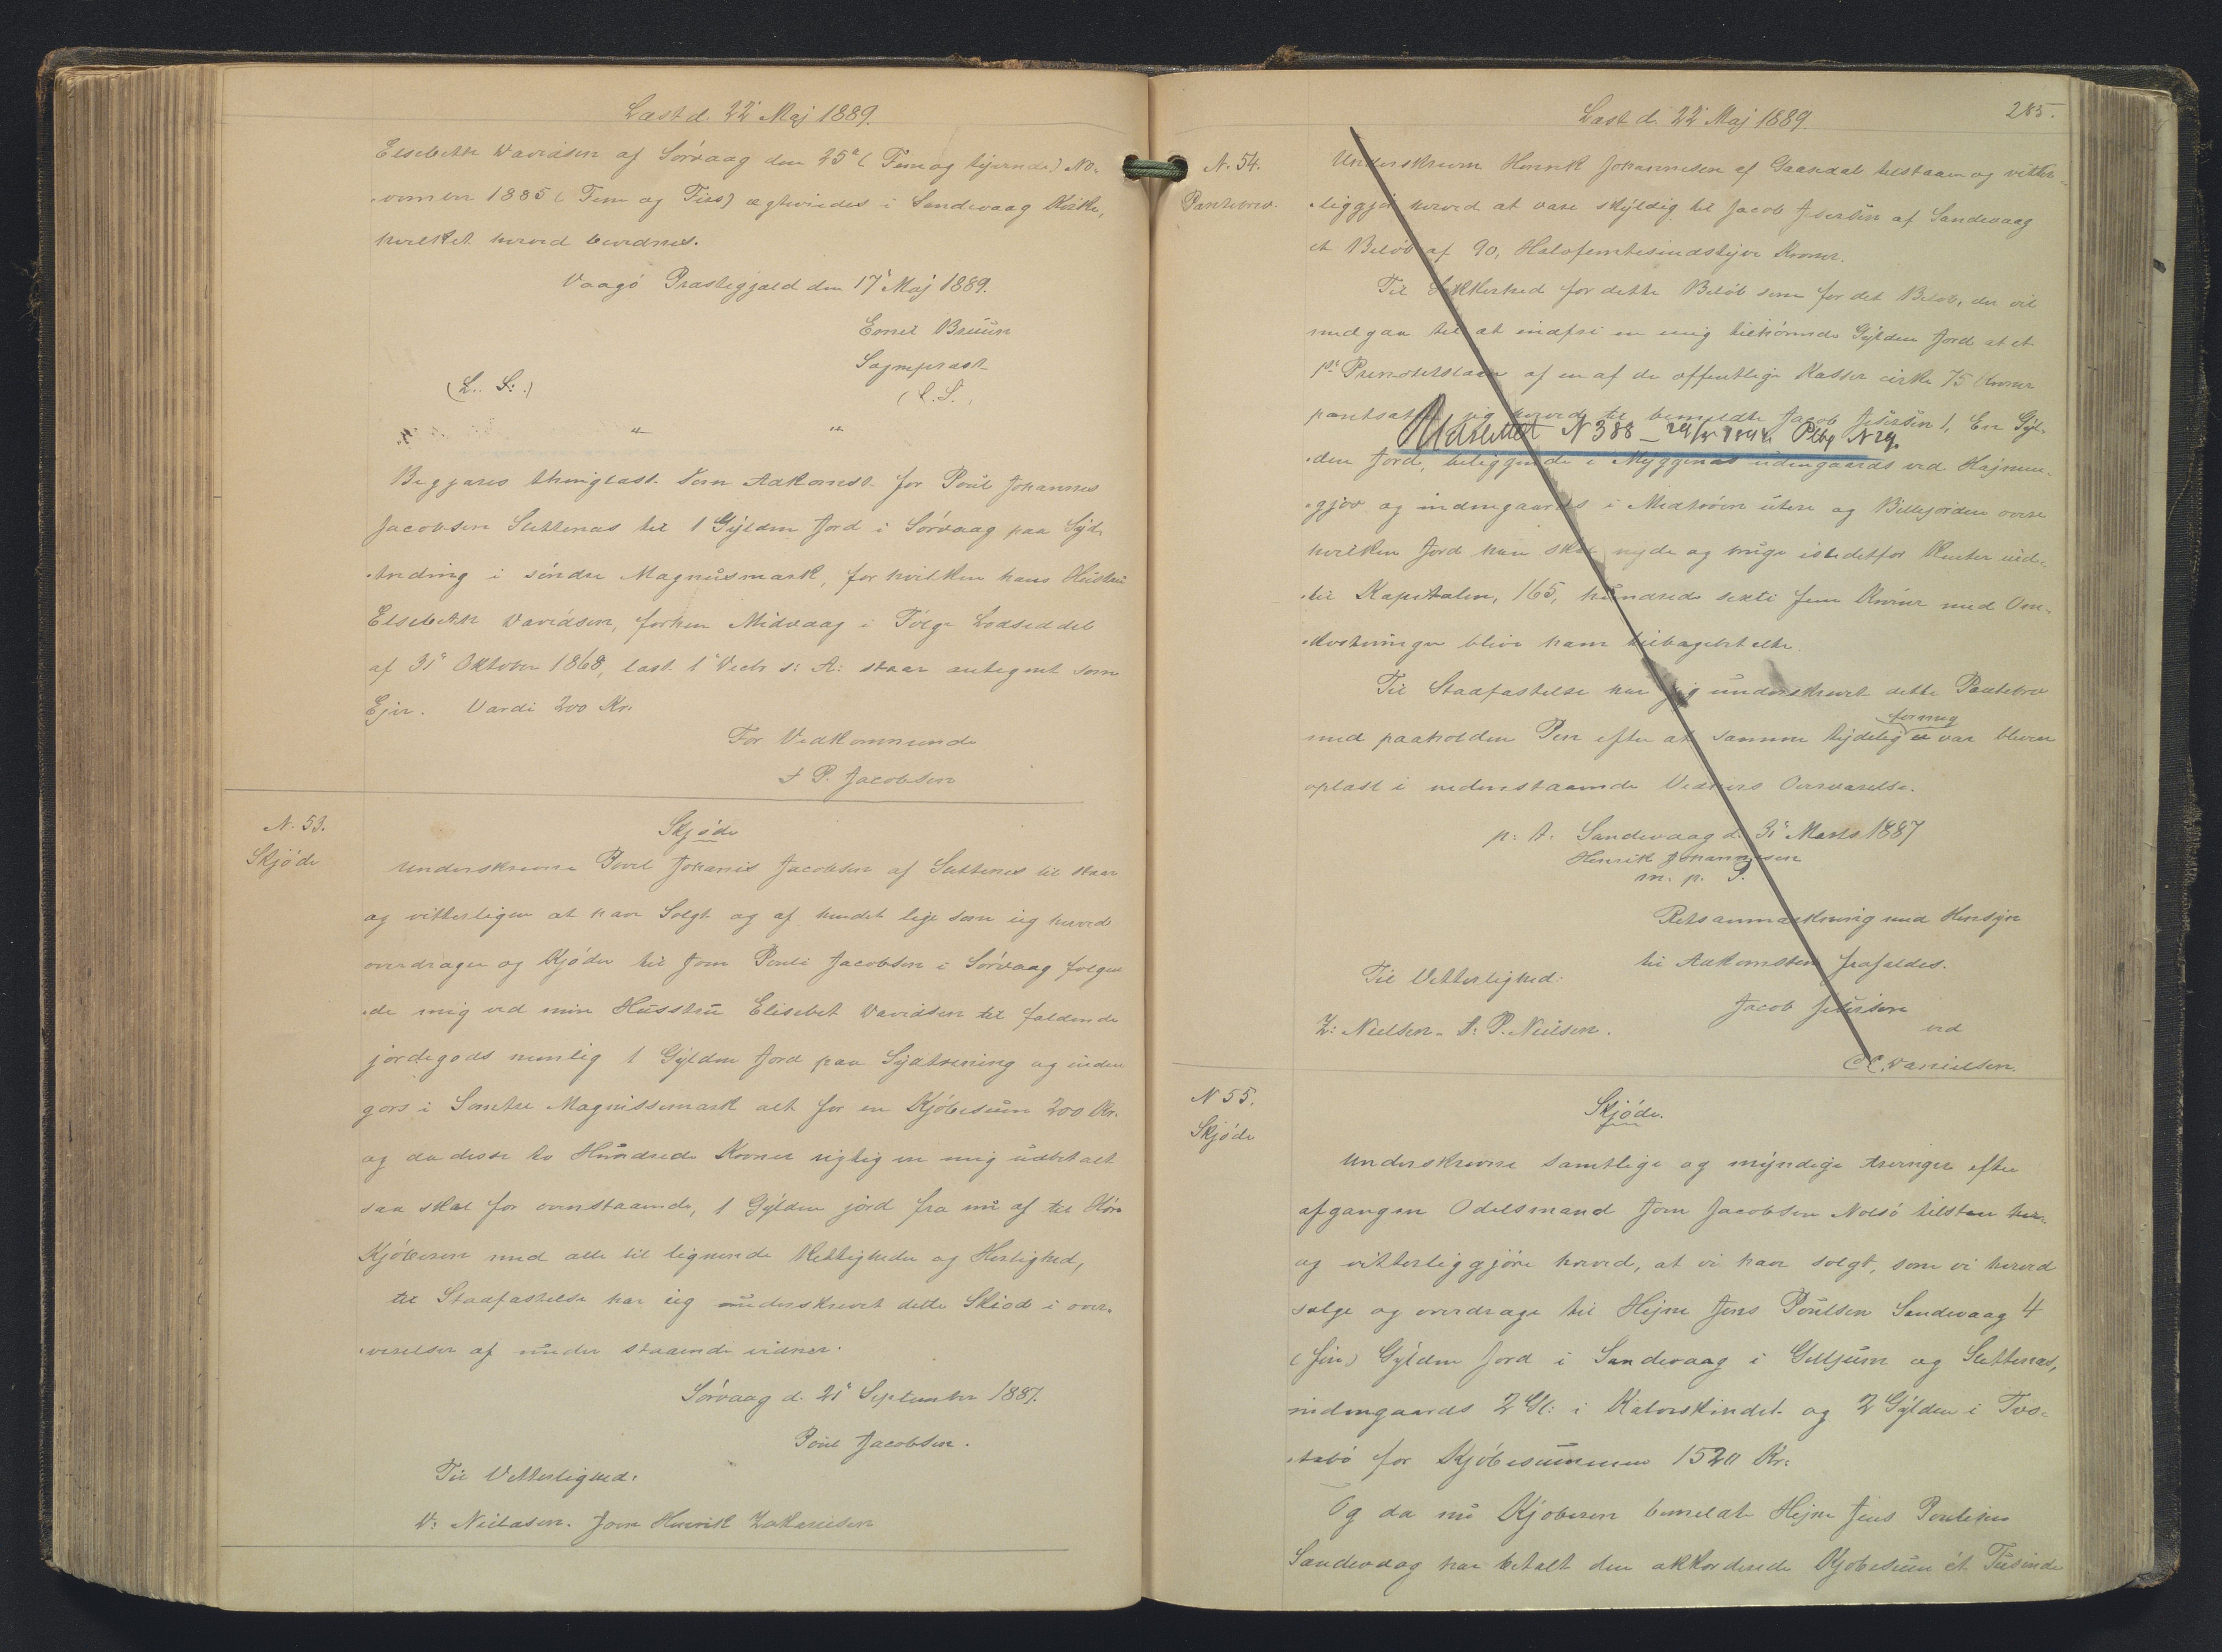 Læst d. 22' Maj 1889.
Elsebeth Davidsen af Sørvaag den 25de (Fem og tjvende) No-
vember 1885 (Fem og Firs) ægteviedes i Sandevaag Kirke,
hvilket herved bevidnes.
Vaagø Præstegjæld den 17' Maj 1889.
Emil Bruun
Sognepræst
(L. S.)
(L. S.)
Begjæres thinglæst som Adkomst for Poul Johannes
Jacobsen Slettenæs til 1 Gylden Jord i Sørvaag paa Syd-
træding i søndre Magnusmark, for hvilken hans Hustru
Elsebeth Davidsen, forhen Midvaag i Følge Lodseddel
af 31' Oktober 1868, læst 1' Decbr s: A: staar antegnet som
Ejer. Værdi 200 Kr.
For Vedkommende
J P. Jacobsen
N. 53.
Skjøde
Skjøde
Underskrevne Povel Johanis Jacobsen af Slettenes til staar
og vitterligen at have Solgt og af hændet lige som ieg herved
overdrager og Kjøder til Joen Pouli Jacobsen i Sørvaag følgen
de mig ved min Husstru Elisebet Davidsen til faldende
jordegods nemlig 1 Gylden Jord paa Sydtrening og inden
gors i Somtre Magnissemark alt for en Kjøbesum 200 Kr.
og da disse to Hundrede Kroner rigtig er mig udbetalt
saa skal for ovenstaaende, 1 Gylden jord fra nu af til Høre
Kjøberen med alle til lignende Rettigheder og Herlighed,
til Staafæstelse har ieg underskrevet dette Skiød i over-
værelser af under staaende vidner.
Sørvaag d. 21' September 1887.
Poul Jacobsen.
Til Vitterlighed:
D: Nielasen. Joen Henrik Zakariasen
Læst d. 22' Maj 1889.
285.
N. 54.
Pantebrev.
Underskreven Henrik Johannesen af Gaasedal tilstaar og vitter-
liggjør herved at være skyldig til Jacob Jesersen af Sandevaag
et Beløb af 90, Halvfemtesindstyve Kroner.
Til Sikkerhed for dette Beløb som for det Beløb, der vil
medgaa til at indfri en mig tilhørende Gylden Jord at et
1ste Prioritetslaan af en af de offentlige Kasser cirka 75 Kroner
pantsætter jeg herved til bemeldte Jacob Jesersen 1, En Gyl-
Udslettet N 388 - 29/ 1894 Pbg N 29.
den Jord, beliggende i Myggenæs udengaards ved Hajnne-
gjov og indengaards i Midtrøen utere og Billejorden øvre
hvilken Jord han skal nyde og bruge istedetfor Renter ind-
til Kapitalen, 165, hundrede sexti fem Kroner med Om-
kostninger blive ham tilbagebetalte.
Til Staafæstelse har jeg underskrevet dette Pantebrev
for mig
med paaholden Pen efter at samme tydelig er var bleven
oplæst i nedenstaaende Vidners Overværelse.
p: t: Sandevaag d. 31' Marts 1887
Henrik Johannesen
m. p. P.
Retsanmærkning med Hensyn
til Adkomsten frafaldes.
Til Vitterlighed:
Jacob Jesersen
Z: Nielsen - S: P. Nielsen.
ved
C.C. Danielsen.
N 55.
Skjøde
Skjøde.
Underskrevne samtlige og myndige Arvinger efter
afgangen Odelsmand Joen Jacobsen Nolsø tilstaa her-
og vitterliggjøre herved, at vi have solgt, som vi herved
sælge og overdrage til Hejne Jens Poulsen Sandevaag 4
(fire) Gylden Jord i Sandevaag i Gilljum og Slettenæs,
indengaards 2 Gl: i Kalvskindet og 2 Gylden i Tvo-
trbø for Kjøbesummen 1520 Kr:
Og da nu Kjøberen bemeldte Hejne Jens Poulsen
Sandevaag har betalt den akkorderede Kjøbesum èt Tusinde